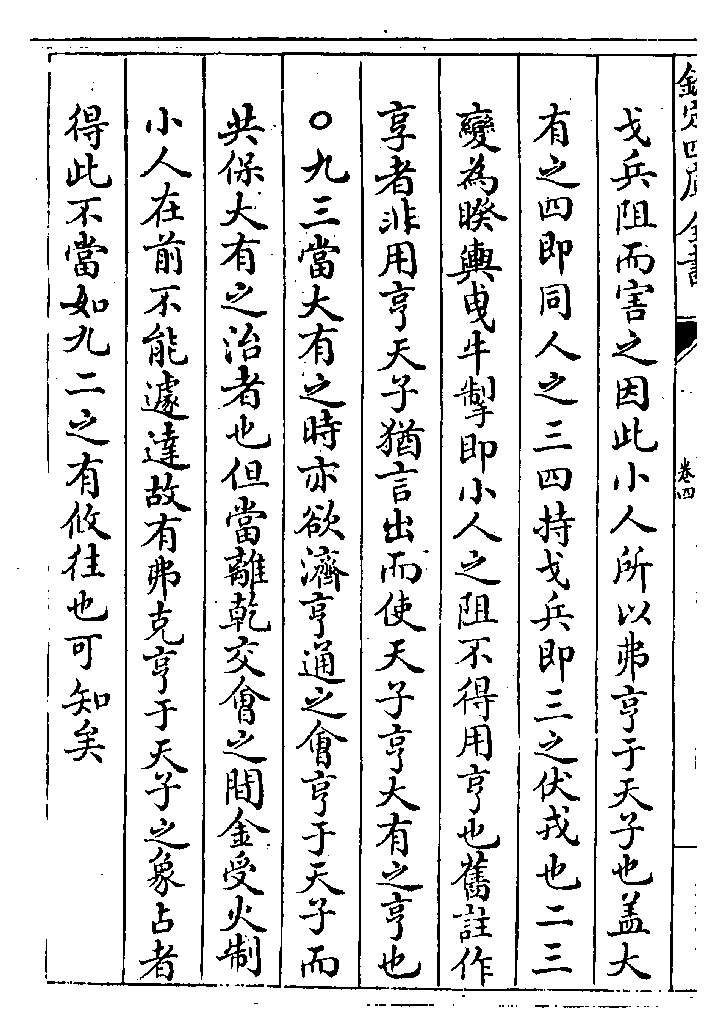 欽定四庫全書
卷四
戈兵阻而害之因此小人所以弗亨于天子也盖大
有之四即同人之三四持戈兵即三之伏戎也二三
變為睽輿曳牛掣即小人之阻不得用亨也舊註作
享者非用亨天子猶言出而使天子亨大有之亨也
○九三當大有之時亦欲濟亨通之會亨于天子而
共保大有之治者也但當離乾交會之間金受火制
小人在前不能遽達故有弗克亨于天子之象占者
得此不當如九二之有攸往也可知矣